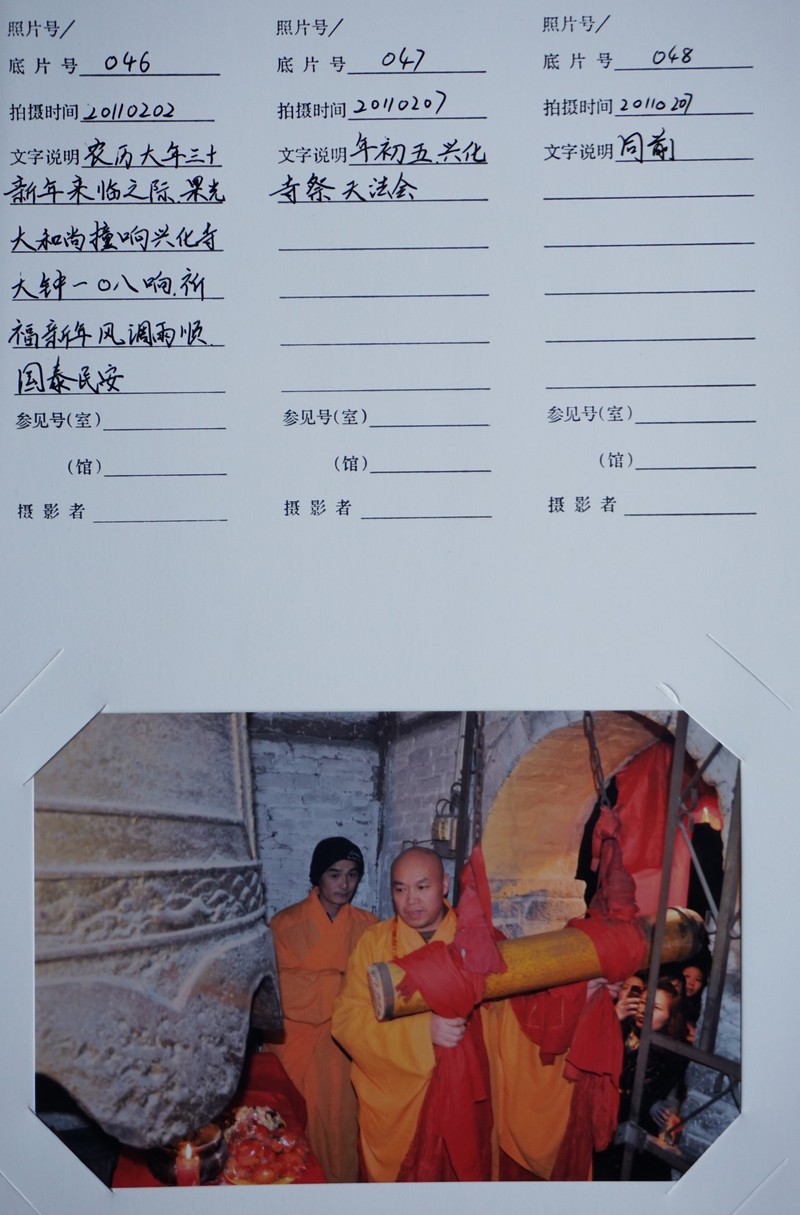 照片号/
底片号 046
拍摄时间 20110202
文字说明 农历大年三十
新年来临之际.果光
大和尚撞响兴化寺
大钟一0八响.祈
福新年风调雨顺.
国泰民安
参见号(室)
(馆)
摄影者
照片号/
底片号 047
拍摄时间 20110207
文字说明 年初五.兴化
寺祭天法会
参见号(室)
(馆)
摄影者
照片号/
底片号 048
拍摄时间 20110207
文字说明 同前
参见号(室)
(馆)
摄影者